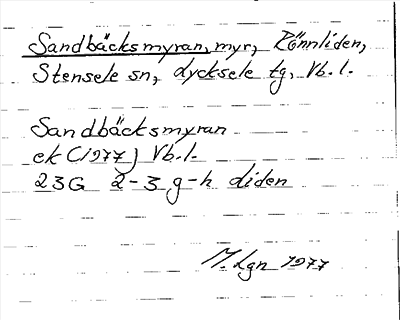 Sandbäcksmyran, myr, Rönnliden,
Stensele sn, Lycksele tg, Vb. l.
Sandbäcksmyran
ek (1977) Vb. l.
23G 2-3 g-h diden
M. Lgn 1977